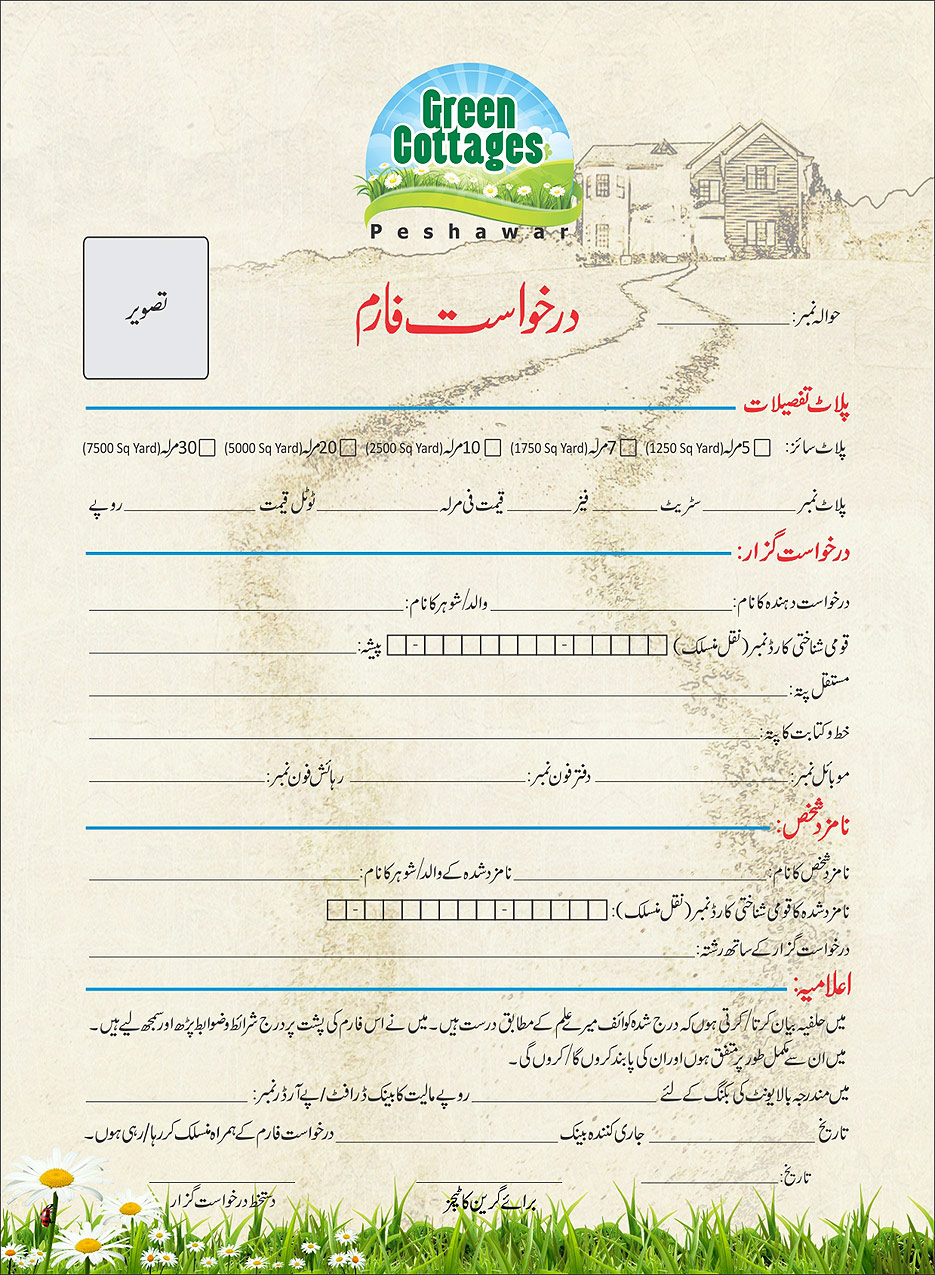 Green
Cottages
Peshawar
تصویر
درخواست فارم
حوالہ نمبر: ____________
پلاٹ تفصیلات
پلاٹ سائز: ☐ 5مرلہ (1250 Sq Yard) ☐ 7مرلہ (1750 Sq Yard) ☐ 10مرلہ (2500 Sq Yard) ☐ 20مرلہ (5000 Sq Yard) ☐ 30مرلہ (7500 Sq Yard)
پلاٹ نمبر ________ سٹریٹ ________ فیز ________ قیمت فی مرلہ ________ ٹوٹل قیمت ________ روپے
درخواست گزار:
درخواست دہندہ کا نام: ________ والد/شوہر کا نام: ________
قومی شناختی کارڈ نمبر (نقل منسلک) - - پیشہ: ________
مستقل پتہ: ________
خط و کتابت کا پتہ: ________
موبائل نمبر: ________ دفتر فون نمبر: ________ رہائش فون نمبر: ________
نامزد شخص:
نامزد شخص کا نام: ________ نامزد شدہ کے والد/شوہر کا نام: ________
نامزد شدہ کا قومی شناختی کارڈ نمبر (نقل منسلک): - -
درخواست گزار کے ساتھ رشتہ: ________
اعلامیہ:
میں حلفیہ بیان کرتا/کرتی ہوں کہ درج شدہ کوائف میرے علم کے مطابق درست ہیں۔ میں نے اس فارم کی پشت پر درج شرائط و ضوابط پڑھ اور سمجھ لیے ہیں۔
میں ان سے مکمل طور پر متفق ہوں اور ان کی پابند کروں گا/کروں گی۔
میں مندرجہ بالا یونٹ کی بکنگ کے لئے ________ روپے مالیت کا بینک ڈرافٹ/پے آرڈر نمبر: ________
تاریخ ________ جاری کنندہ بینک ________ درخواست فارم کے ہمراہ منسلک کر رہا/رہی ہوں۔
تاریخ: ________
برائے گرین کاٹیجز
دستخط درخواست گزار